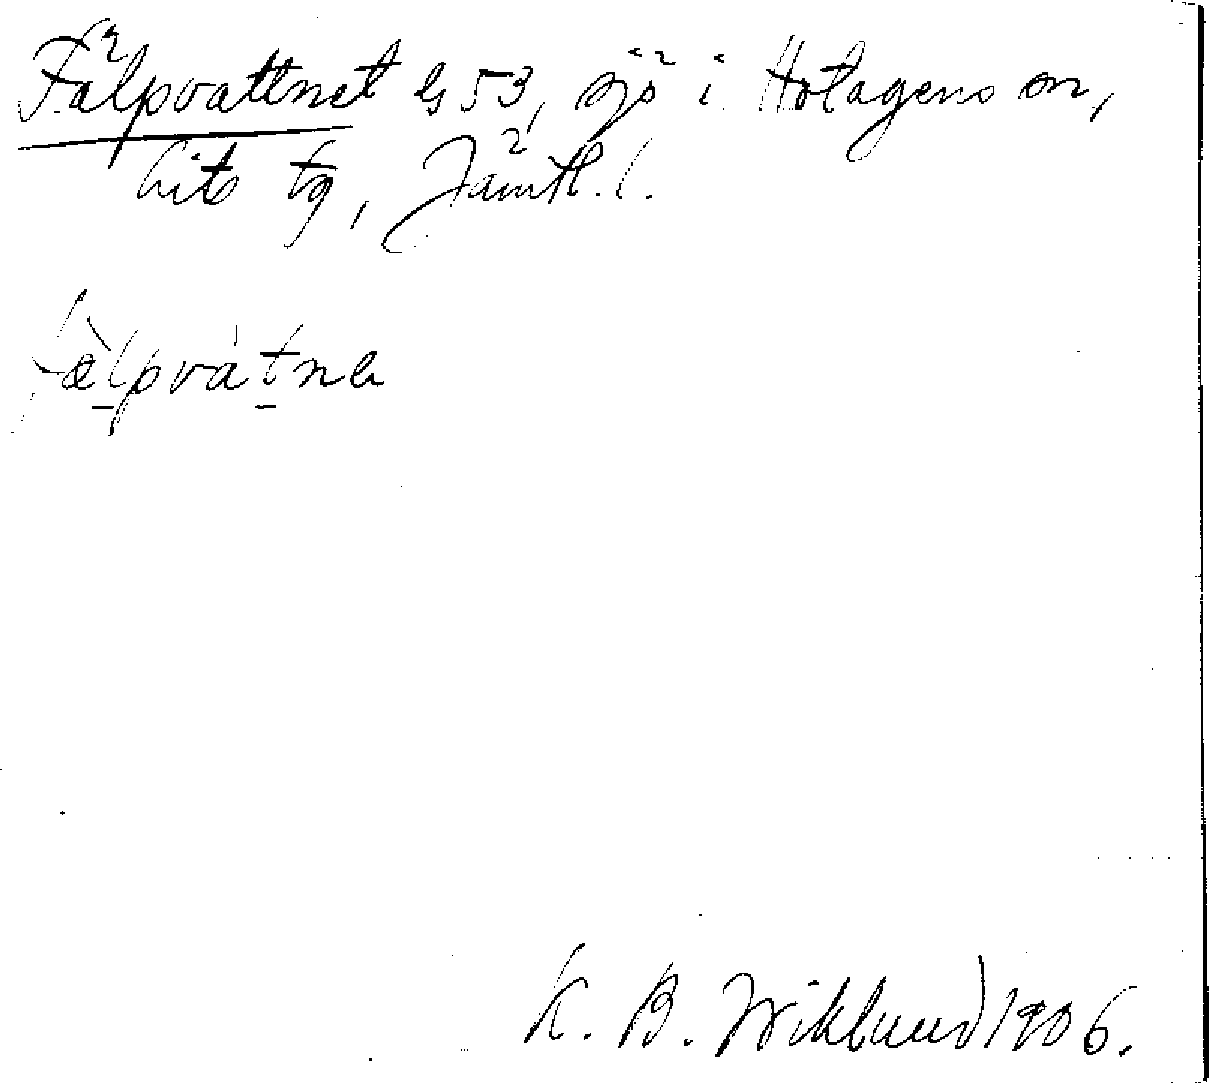 Fälpvattnet G 53, sjö i Hotagens sn,
Lits tg, Jämtl. l.
fæ̀lpvátnɐ
K. B. Wiklund 1906.